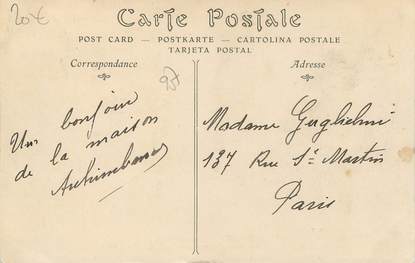 20€
Carte Postale
POST CARD — POSTKARTE — CARTOLINA POSTALE
TARJETA POSTAL
Correspondance
Adresse
Un bonjour
de la maison
Madame Guglielmi
137 Rue St Martin
Paris